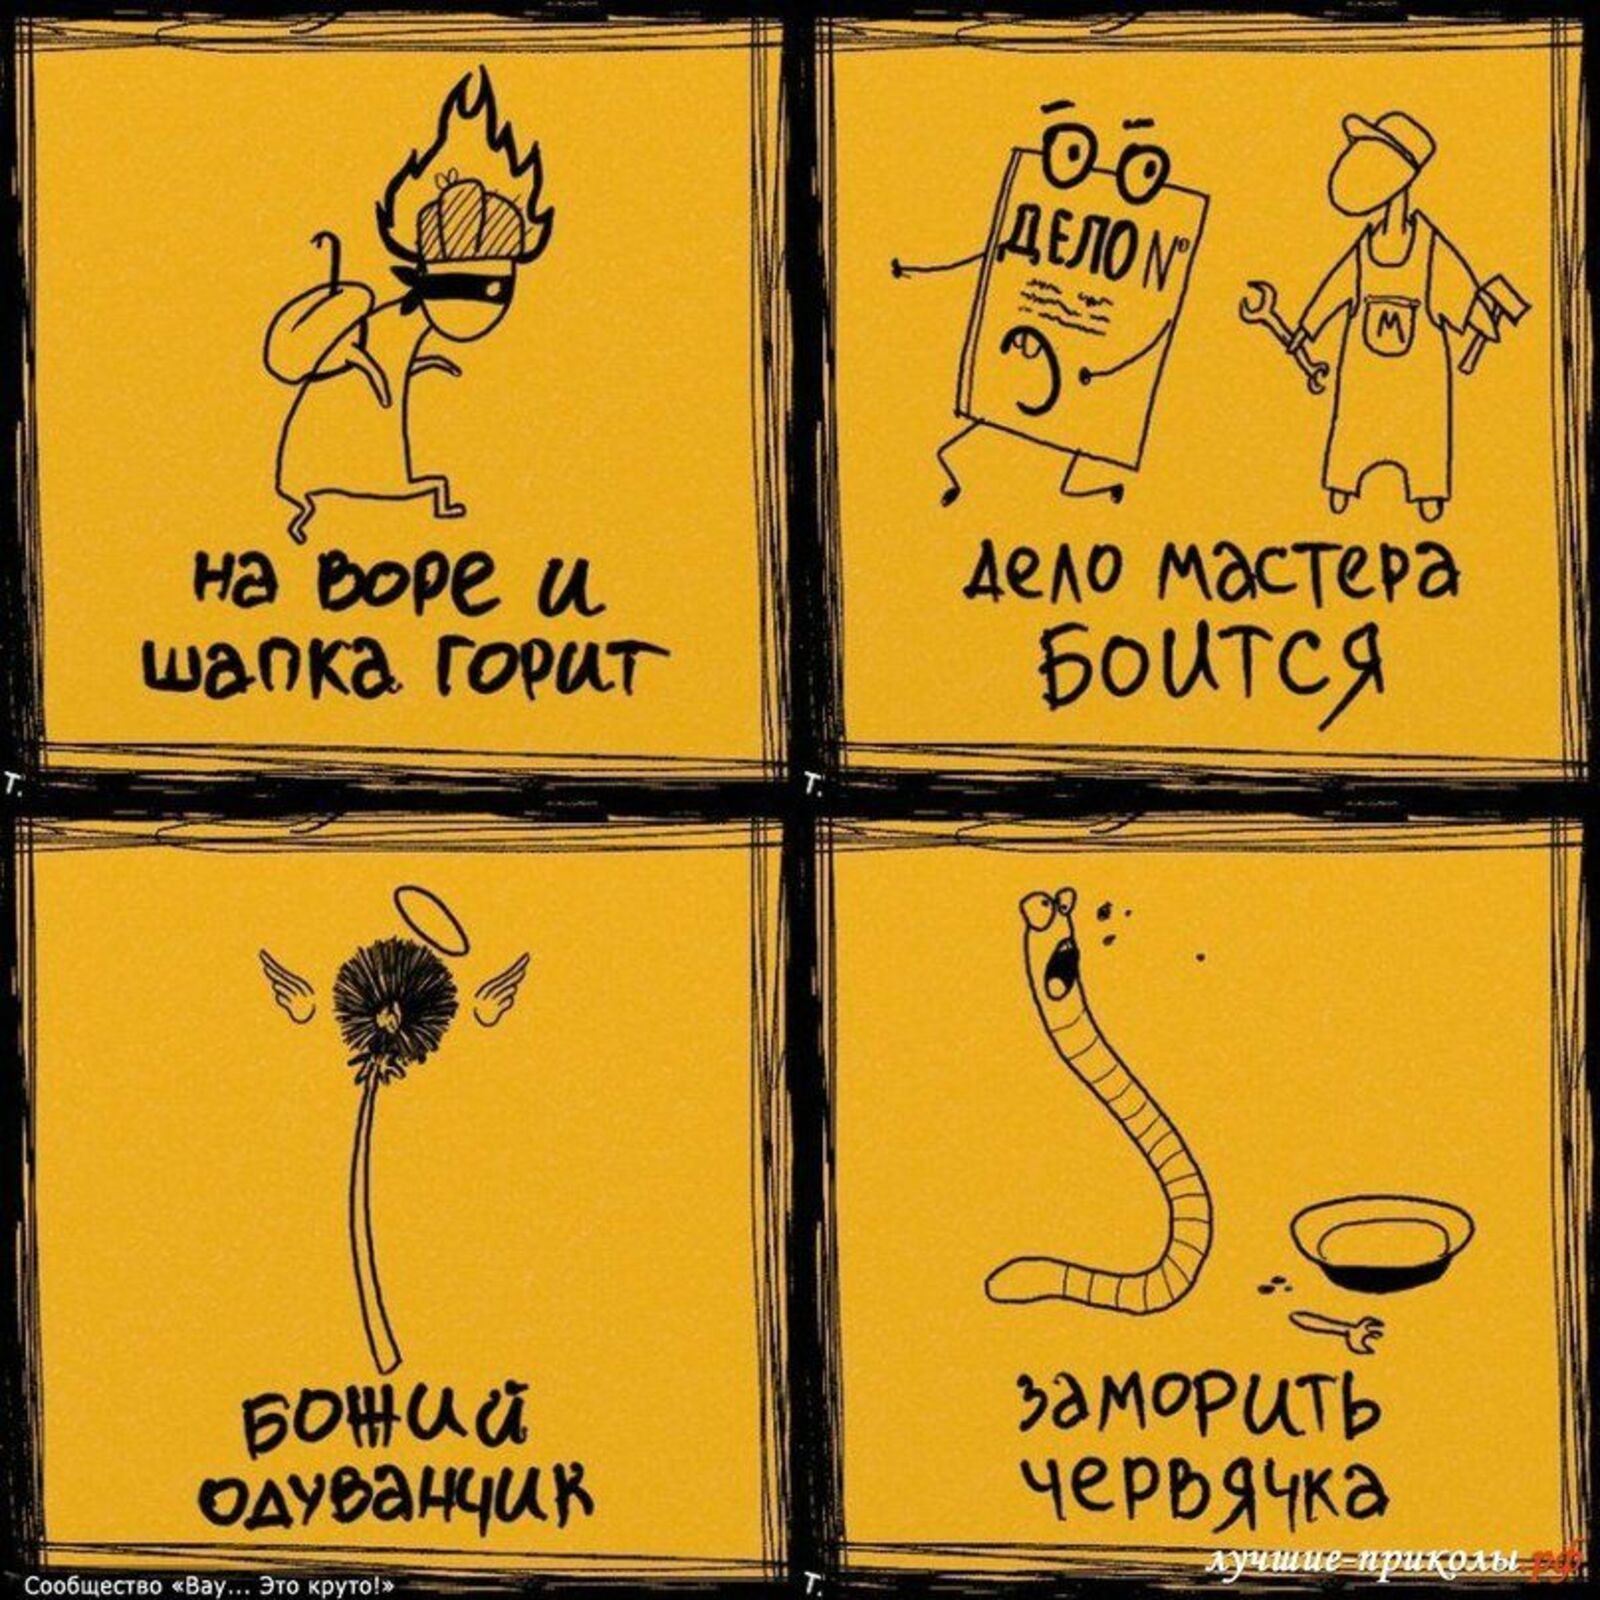 на воре и
шапка горит
Т.
ДЕЛО №
М
дело мастера
БОИТСЯ
Т.
БОЖИЙ
одуванчик
Сообщество «Вау... Это круто!»
заморить
червячка
Т.
лучшие-приколы.рф